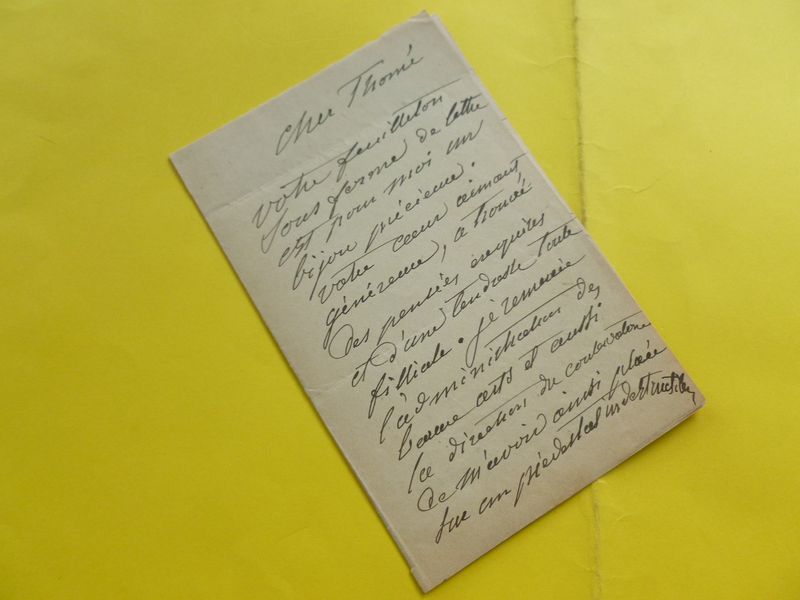 Cher Thomé
votre feuilleton
sous forme de lettre
est pour moi un
bijou précieux.
votre cœur aimant
généreux, a trouvé
des pensées exquises
et d'une tendresse toute
filliale. je remercie
l'administration des
beaux arts et aussi
la direction du conservatoire
de m'avoir ainsi placée
sur un piédestal indestructible